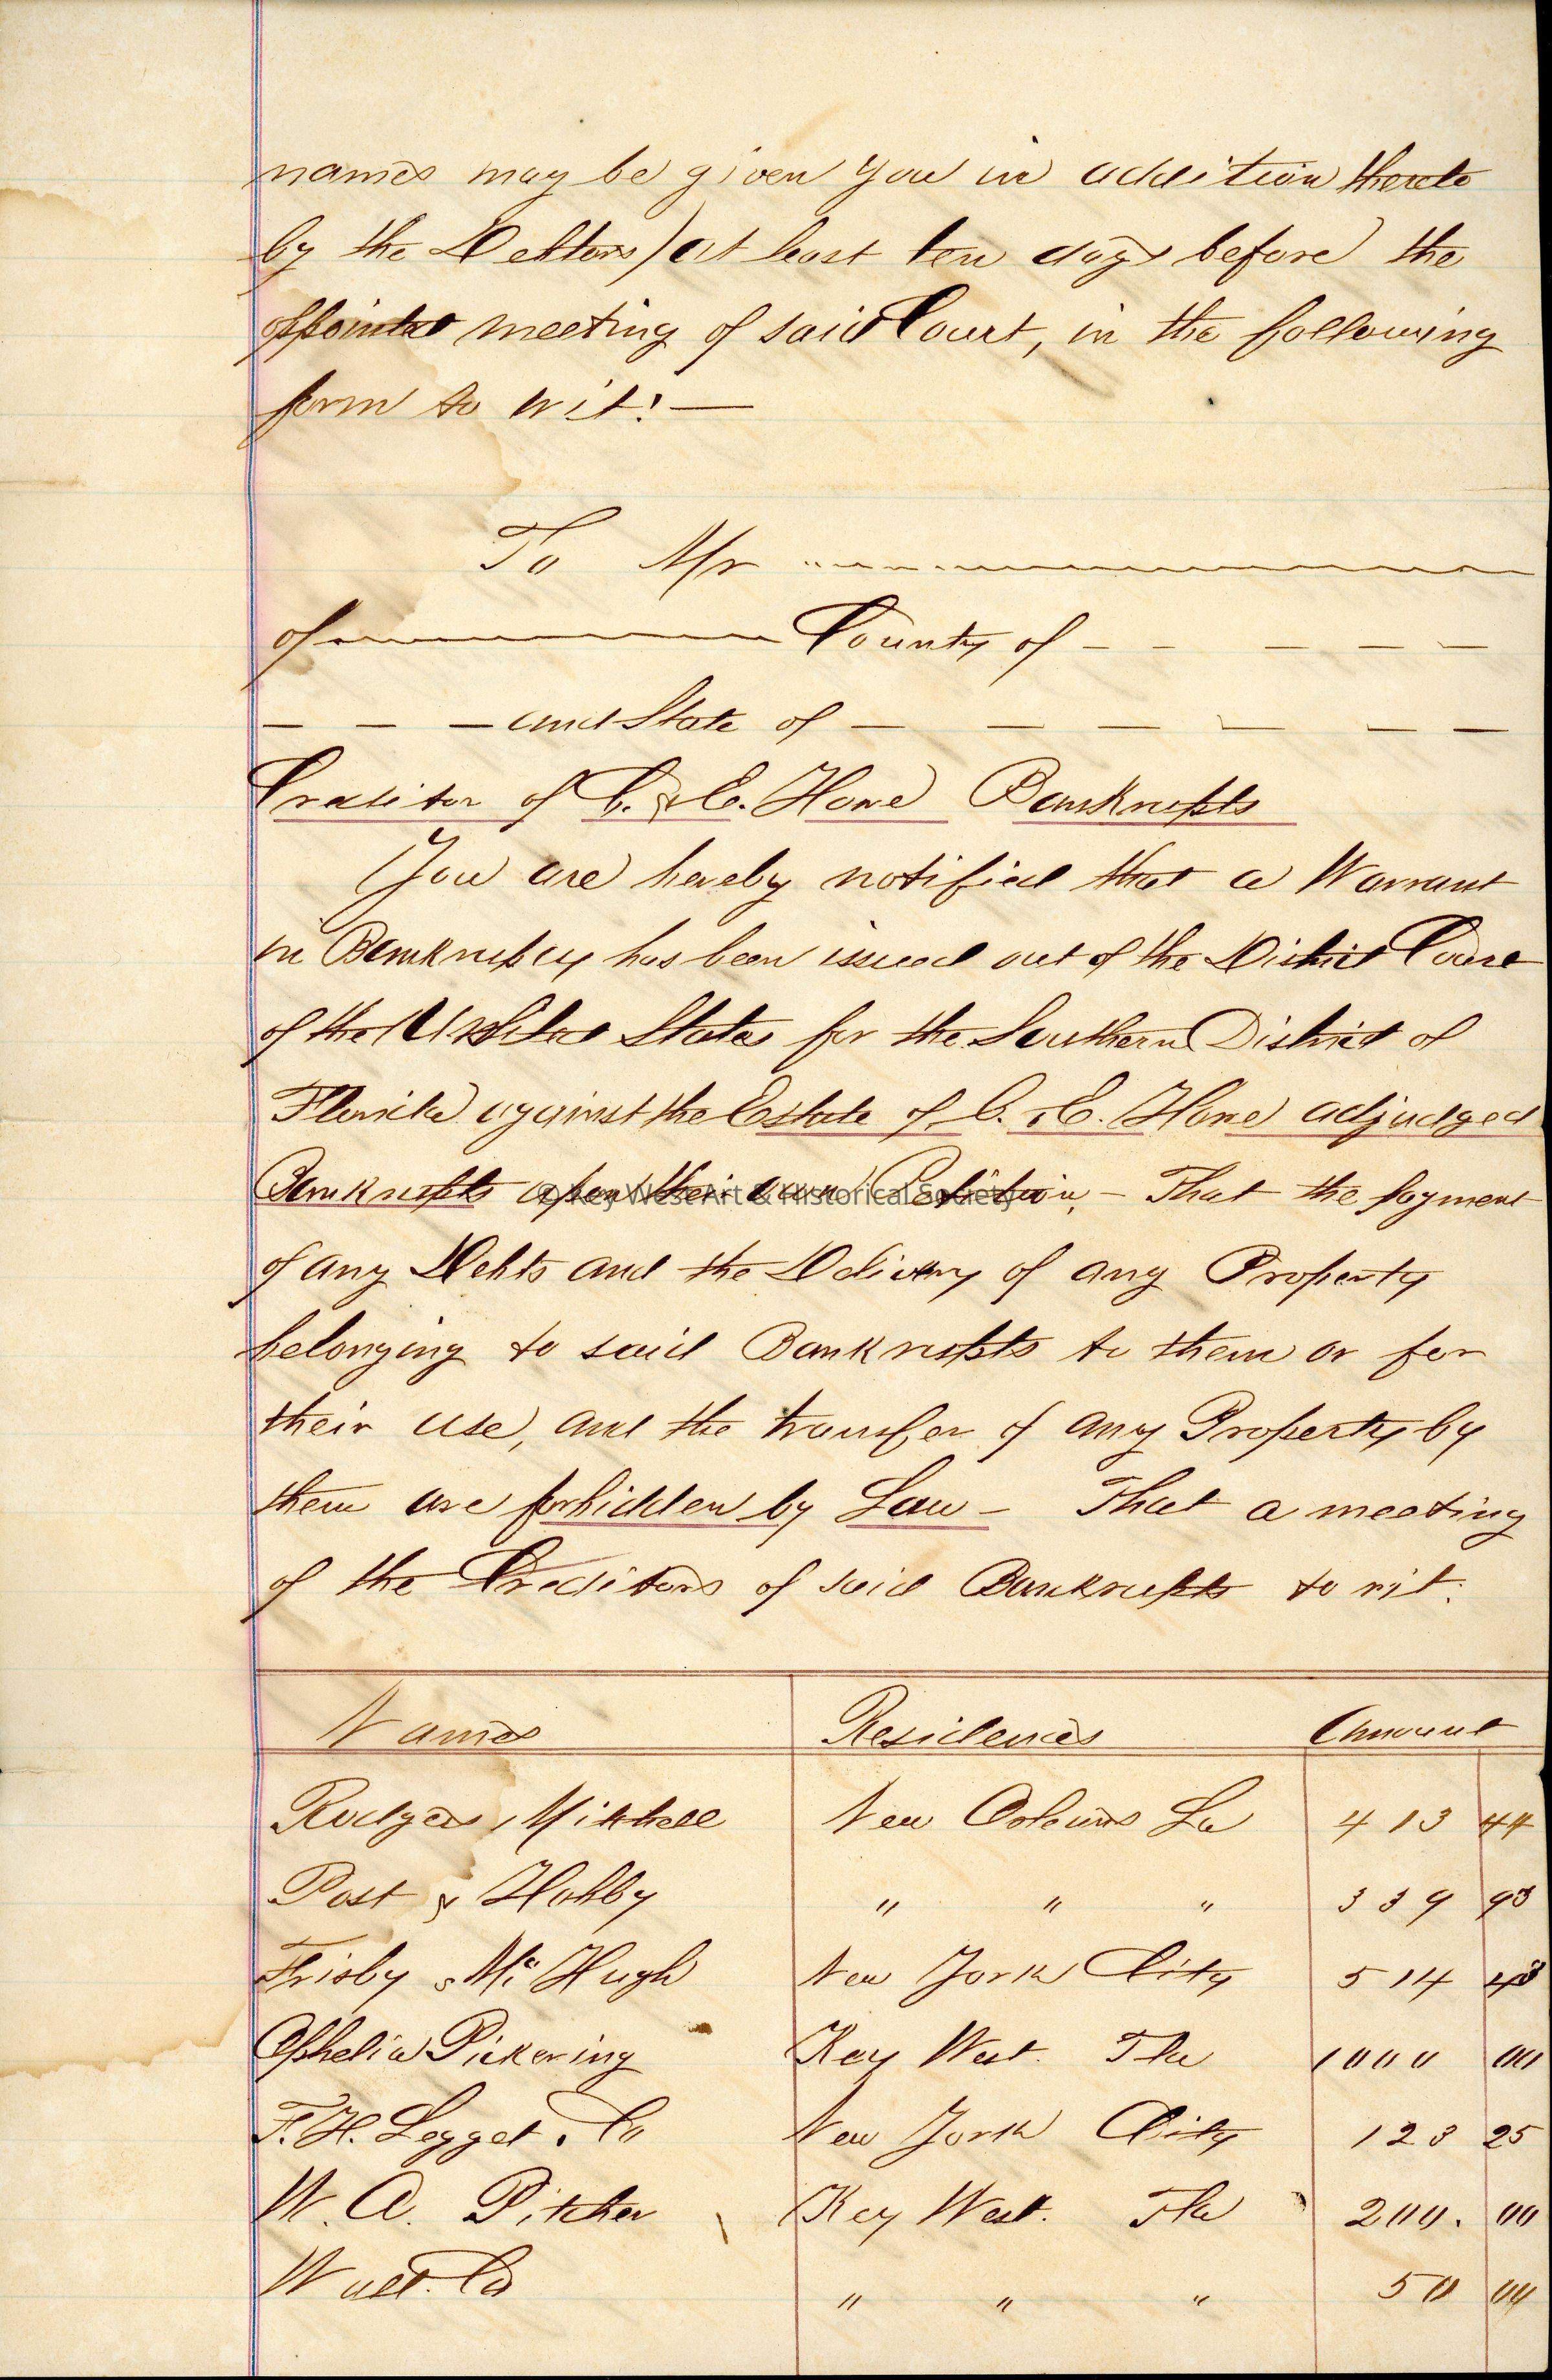 names may be given you in addition thereto
by the Debtors) at least ten days before the
appointed meeting of said Court, in the following
form to wit:—
To Mr
of County of — — — — —
— — — and State of — — — — — —
Creditor of C. & E. Howe Bankrupts
You are hereby notified that a Warrant
in Bankruptcy has been issued out of the District Court
of the United States for the Southern District of
Florida against the Estate of C. & E. Howe adjudged
Bankrupts upon their own Petition, — That the payment
© Key West Art & Historical Society
of any Debts and the Delivery of any Property
belonging to said Bankrupts to them or for
their use, and the transfer of any Property by
them are forbidden by Law — That a meeting
of the Creditors of said Bankrupts to wit:
Names Residences Amount
Rodgers & Mitchell New Orleans La 413 44
Post & Hobby " " " 339 93
Frisby & Mc Hugh New York City 514 43
Ophelia Pickering Key West. Fla 1000 00
F. H. Legget & Co New York City 123 25
W. A. Pitcher Key West. Fla 200. 00
Wall & Co " " " 50 00